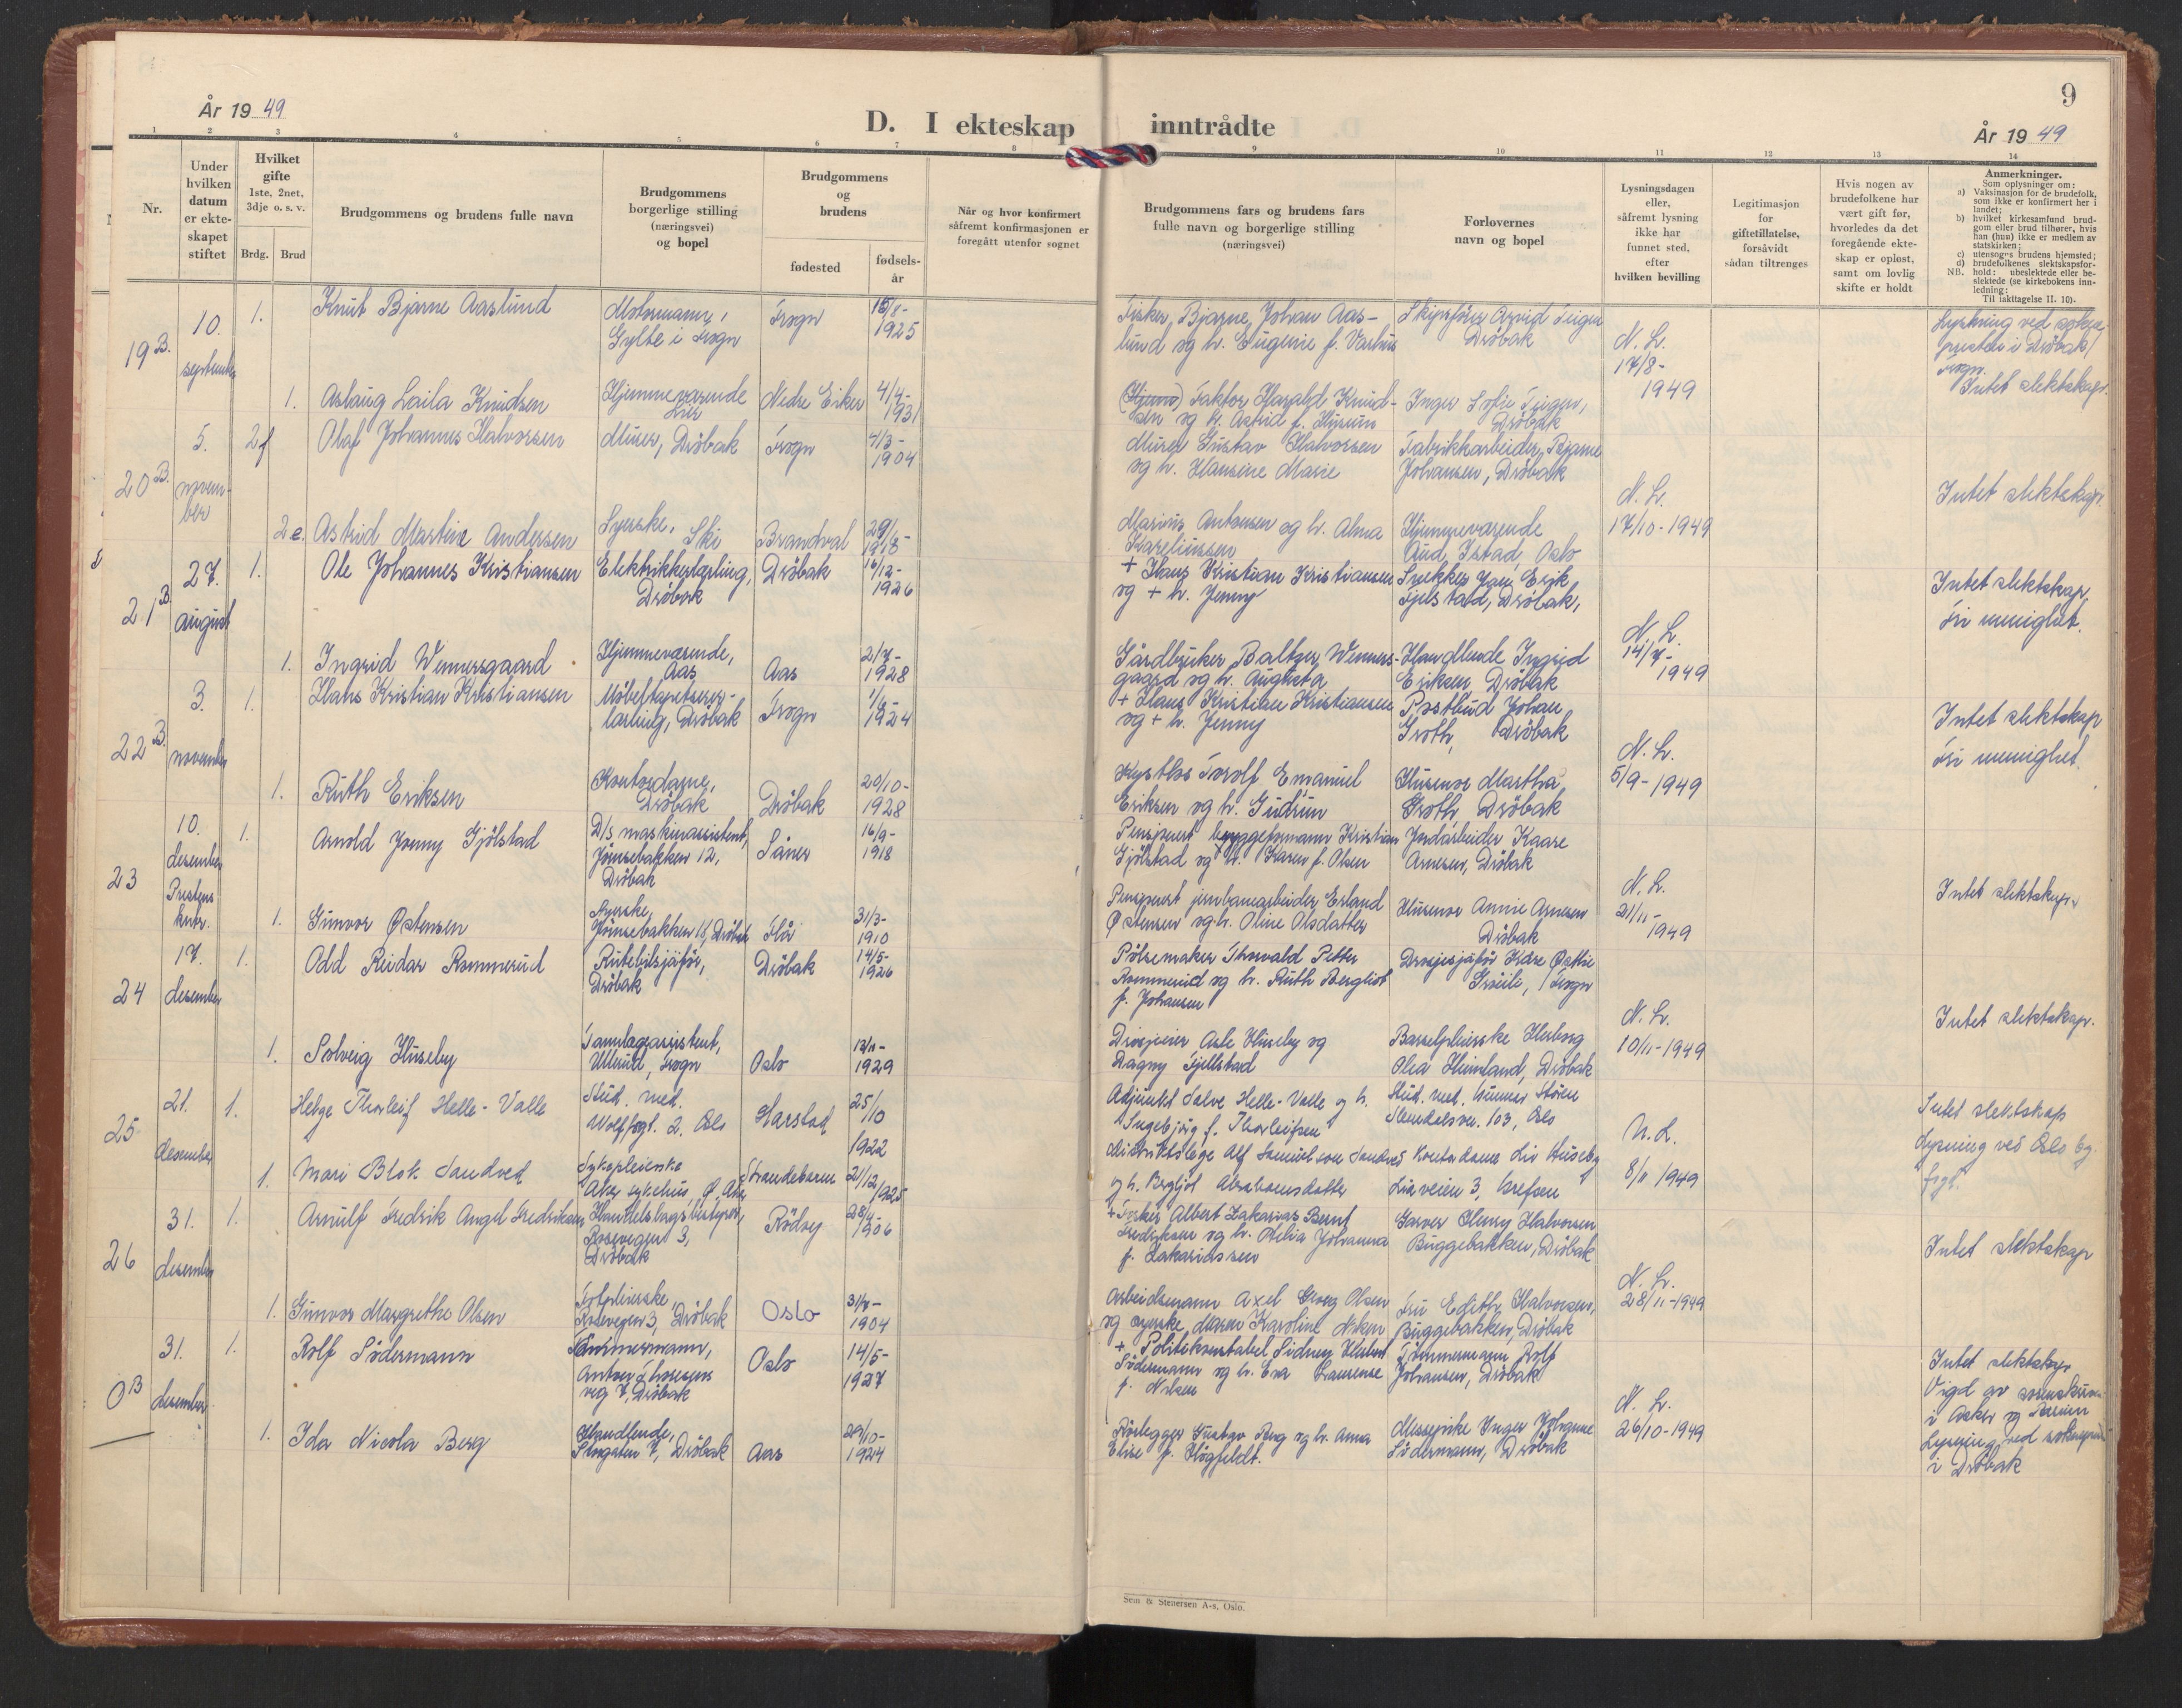 År 1949
D. I ekteskap inntrådte
9
År 1949
1 2 3 4 5 6 7 8 9 10 11 12 13 14
Nr.
Under
hvilken
datum
er ekte-
skapet
stiftet
Hvilket
gifte
1ste, 2net,
3dje o. s. v.
Brdg. Brud
Brudgommens og brudens fulle navn
Brudgommens
borgerlige stilling
(næringsvei)
og bopel
Brudgommens
og
brudens
fødested
fødsels-
år
Når og hvor konfirmert
såfremt konfirmasjonen er
foregått utenfor sognet
Brudgommens fars og brudens fars
fulle navn og borgerlige stilling
(næringsvei)
Forlovernes
navn og bopel
Lysningsdagen
eller,
såfremt lysning
ikke har
funnet sted,
efter
hvilken bevilling
Legitimasjon
for
giftetillatelse,
forsåvidt
sådan tiltrenges
Hvis nogen av
brudefolkene har
vært gift før,
hvorledes da det
foregående ekte-
skap er opløst,
samt om lovlig
skifte er holdt
Anmerkninger.
Som oplysninger om:
a) Vaksinasjon for de brudefolk,
som ikke er konfirmert her i
landet;
b) hvilket kirkesamfund brud-
gom eller brud tilhører, hvis
han (hun) ikke er medlem av
statskirken;
c) utensogns brudens hjemsted;
d) brudefolkenes slektskapsfor-
NB. hold: ubeslektede eller be-
slektede (se kirkebokens inn-
ledning:
Til iakttagelse II. 10).
19 B.
10.
september
1. Knut Bjarne Aaslund
Motormann,
Gylte i Frogn
Frogn
15/8-
1925
Fisker Bjarne Johan Aas-
lund og h. Eugenie f.
Skipsfører Arvid Teigen
Drøbak
N. L.
17/8-
1949
Lysning ved sokne-
presten i Drøbak/
Frogn.
Intet slektskap.
1. Aslaug Laila Knudsen
Hjemmeværende
Lier
Nedre Eiker
4/4-
1931
Faktor Harald Knud-
sen og h. Astrid f.
Inger Sofie Teigen,
Drøbak
20 B.
5.
novem-
ber
2f Olaf Johannes Halvorsen
Murer, Drøbak
Frogn
4/3-
1904
Murer Gustav Halvorsen
og h. Hansine Marie
Fabrikkarbeider Bjarne
Johansen, Drøbak
N. L.
17/10-1949
Intet slektskap.
2e. Astrid Martine Andersen
Syerske, Ski
Brandval
1918
Marius Antonsen og h. Alma
Kareliussen
Hjemmeværende
Aud Istad, Oslo
21 B.
27.
august
1. Ole Johannes Kristiansen
Elektrikerlærling,
Drøbak
Drøbak
16/12-
1926
+ Hans Kristian Kristiansen
og + h. Jenny
Snekker Jan Erik
Fjelstad, Drøbak,
N. L.
14/7-
1949
Intet slektskap.
Fri menighet.
1. Ingrid Wennersgaard
Hjemmeværende,
Aas
Aas
2/7-
1928
Gårdbruker Baltzer Wenners-
gaard og h. Augusta
Handlende Ingrid
Eriksen, Drøbak
22 B.
3.
november
1. Hans Kristian Kristiansen
Møbeltapetserer-
lærling, Drøbak
Frogn
1924
+ Hans Kristian Kristiansen
og + h. Jenny
Postbud Johan
Groth, Drøbak
N. L.
5/9-1949
Intet slektskap
Fri menighet.
1. Ruth Eriksen
Kontordame,
Drøbak
Drøbak
20/10-
1928
Kystlos Torolf Emanuel
Eriksen og h. Gudrun
Husmor Martha
Groth, Drøbak
23
10.
desember
Prestens
kntr.
1. Arnold Jonny Gjølstad
D/s maskinassistent,
Jomsebakken 12,
Drøbak
Såner
16/9-
1918
Pensjonert bryggeformann Kristian
Gjølstad og h. Karen f. Olsen
Jordarbeider Kaare
Arnesen, Drøbak
N. L.
21/11-
1949
Intet slektskap.
1. Gunvor Østensen
Syerske,
Jomsebakken 18, Drøbak
Flå
31/3-
1910
Pensjonert jernbanearbeider Erland
Østensen og h. Oline Olsdatter
Husmor Annie Arnesen
Drøbak
24
17.
desember
1. Odd Reidar Rommerud
Rutebilsjåfør,
Drøbak
Drøbak
14/5-
1926
Pølsemaker Thorvald Petter
Rommerud og h. Ruth Bergliot
f. Johansen
Drosjesjåfør Kåre Østbie
Frogn
N. L.
10/11-1949
Intet slektskap.
1. Solveig Huseby
Tannlegeassistent,
Ullerud, Frogn
Oslo
13/11-
1929
Drosjeeier Asle Huseby og
Dagny Fjellstad
Barselpleierske Herborg
Olea Heimland, Drøbak
25
21.
desember
1. Helge Thorleif Helle-Valle
Stud. med.
Wolffsgt. 2. Oslo
Harstad
25/10
1922
Adjunkt Salve Helle-Valle og h.
Ingebjørg f. Thorleifsen
Stud. med. Gunnar Støren
103, Oslo
N. L.
8/11 1949
Intet slektskap
Lysning ved Oslo by-
fogt.
1. Mari Blok Sandved
Sykepleierske
Aker sykehus, Ø. Aker
Strandebarm
21/12
1925
Distriktslege Alf Samuelson Sandved
og h. Bergljot Abrahamsdatter
Kontordame Liv Huseby
Liaveien 3, Grefsen
26
31.
desember
1. Arnulf Fredrik Angel Fredriksen
Handelslagsbestyrer,
Rosevegen 3,
Drøbak
Rødøy
28/4-
1906
+ Fisker Albert Zakarias Bernt
Fredriksen og h. Otelia Johanna
f. Zakariassen
Garver Henry Halvorsen
Buggebakken, Drøbak
N. L.
28/11-1949
Intet slektskap
1. Gunvor Margrethe Olsen
Fotpleierske,
Rosevegen 3, Drøbak
Oslo
31/7-
1904
Arbeidsmann Axel Georg Olsen
og syerske Maren Karoline Nilsen
Fru Edith Halvorsen,
Buggebakken, Drøbak
0 B
31.
desember
1. Rolf Södermann
Tømmermann,
Anton Thoresens
veg 7, Drøbak
Oslo
14/5-
1927
+ Politikonstabel Sidney Hubert
Södermann og h. Eva Laurense
f. Nilsen
Tømmermann Rolf
Johansen, Drøbak
N. L.
26/10-1949
Intet slektskap
Vigd av sorenskriver
i Asker og Bærum
Lysning ved sokneprest
i Drøbak
1. Ida Nicola Berg
Handlende,
Storgaten 7, Drøbak
Aas
29/10-
1924
Rørlegger Gustav Berg og h. Anna
Elise f. Høgfeldt.
Messepike Inger Johanne
Södermann, Drøbak
Sem & Stenersen A-s, Oslo.